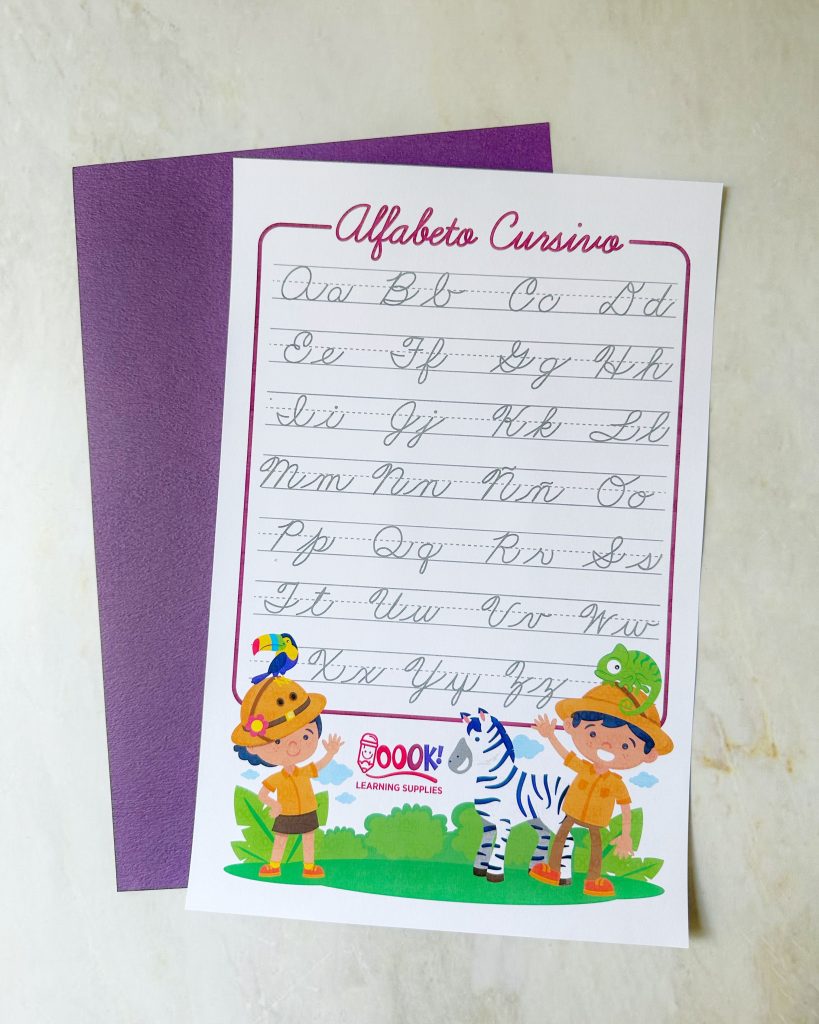 Alfabeto Cursivo
Aa Bb Cc Dd
Ee Ff Gg Hh
Ii Jj Kk Ll
Mm Nn Ññ Oo
Pp Qq Rr Ss
Tt Uu Vv Ww
Xx Yy Zz
loook!
LEARNING SUPPLIES